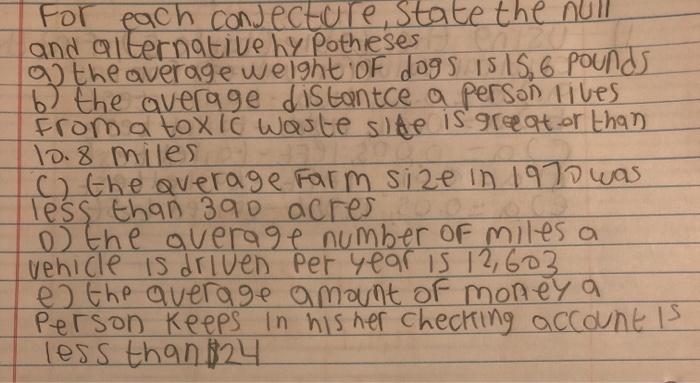 For each conjecture, state the null
and alternative hy Potheses
a) the average weight OF dogs is 15,6 pounds
b) the average distantce a person lives
From a toxic waste site is greeat er than
10.8 miles
C) the average Farm size in 1970 was
less than 390 acres
D) the average number OF miles a
vehicle is driven Per year is 12,603
e) the average amount of money a
Person Keeps in his her checking account is
less than $24